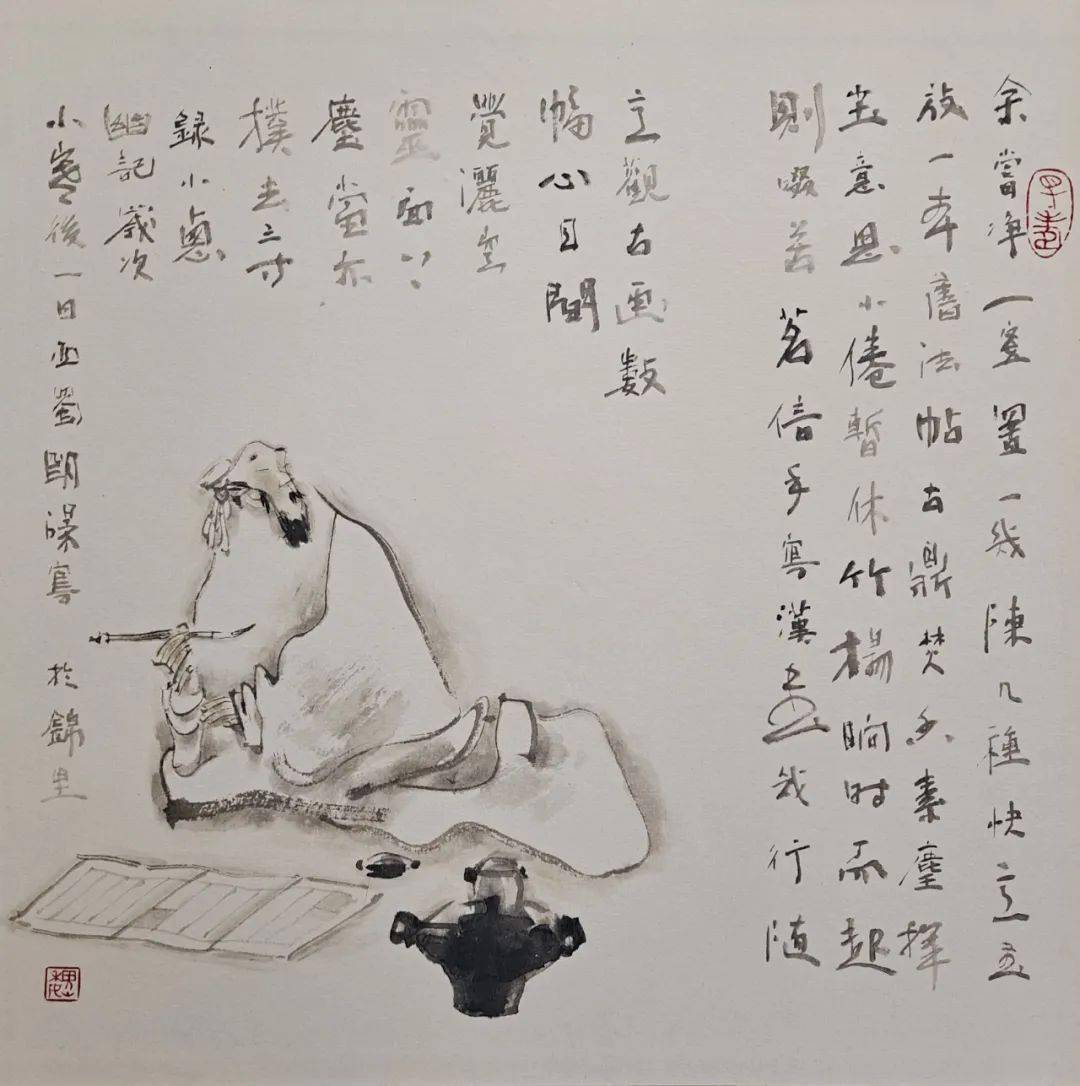 余嘗净一室置一幾陳几種快意書
放一本舊法帖古鼎焚香素塵揮
尘意思小倦暫休竹榻晌时而起
則啜苦茗信手寫漢書幾行随
意觀古画數
幅心目間
覺灑空
靈面上
塵當亦
撲去三寸
録小窗
幽記歲次
小寒後一日西蜀寫於錦里